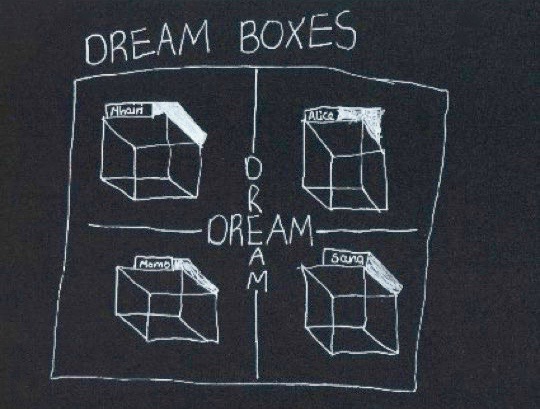 DREAM BOXES
Mhairi
Alice
DREAM
DREAM
Momo
Sang